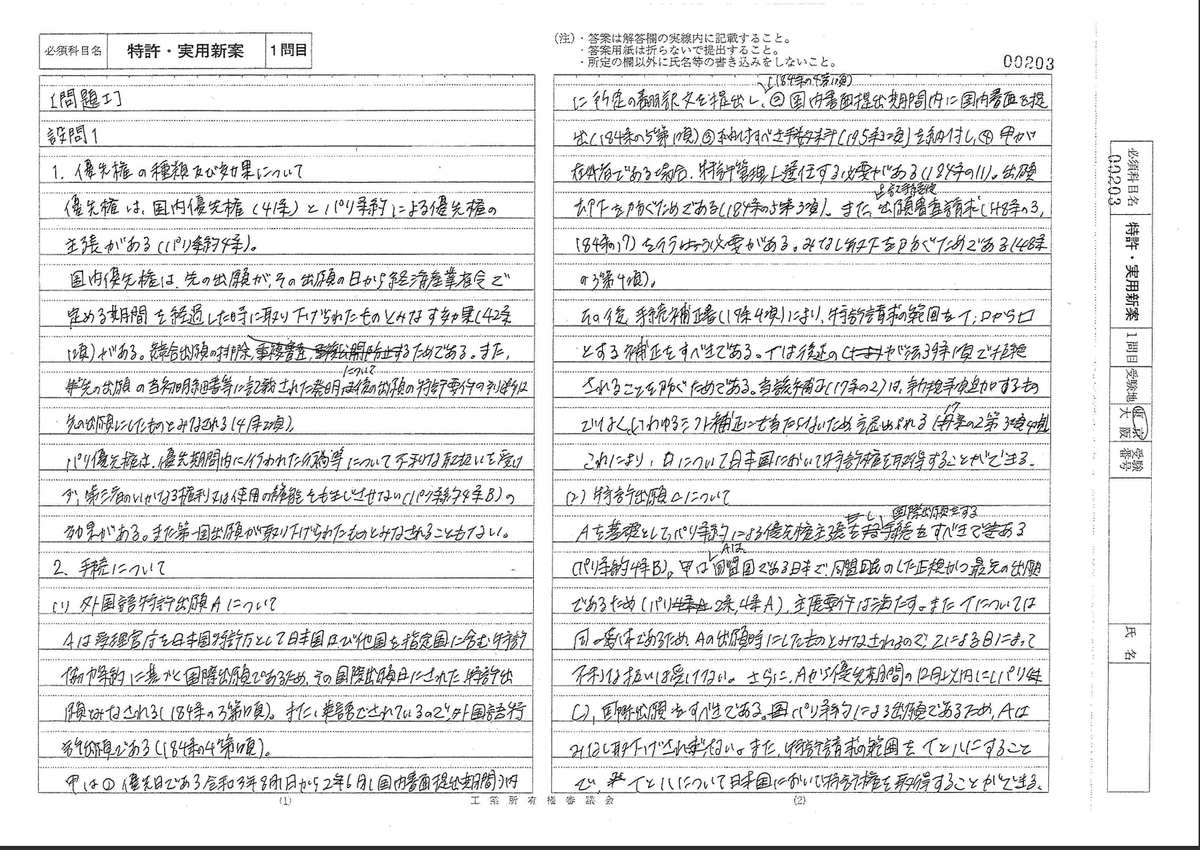 必須科目名 特許・実用新案 1問目
(注)・答案は解答欄の実線内に記載すること。
・答案用紙は折らないで提出すること。
・所定の欄以外に氏名等の書き込みをしないこと。
00203
[問題I]
設問1
1. 優先権の種類及び効果について
優先権は、国内優先権(41条)とパリ条約による優先権の
主張がある(パリ条約4条)。
国内優先権は、先の出願が、その出願の日から経済産業省令で
定める期間を経過した時に取り下げられたものとみなす効果(42条
1項)がある。重複出願の排除、するためである。また、
先の出願の当初明細書等に記載された発明については後の出願の特許要件の判断は
先の出願にしたものとみなされる(41条2項)。
パリ優先権は、優先期間内に行われた行為等について不利な取扱いを受け
ず、第三者のいかなる権利又は使用の権能をも生じさせない(パリ条約4条B)の
効果がある。また第一国出願が取り下げられたものとみなされることもない。
2. 手続について
(1) 外国語特許出願Aについて
Aは受理官庁を日本国特許庁として日本国及び他国を指定国に含む特許
協力条約に基づく国際出願であるため、その国際出願日にされた特許出
願とみなされる(184条の3第1項)。また、英語でされているので外国語特
許出願である(184条の4第1項)。
甲は①優先日である令和3年8月1日から2年6月(国内書面提出期間)内
(1)
に所定の翻訳文を提出し(184条の4第1項)、②国内書面提出期間内に国内書面を提
出(184条の5第1項)③納付すべき手数料(195条2項)を納付し、④甲が
在外者である場合、特許管理人を選任する必要がある(184条の11)。出願
却下を防ぐためである(184条の5第3項)。また、上記手続後出願審査請求(48条の3,
184条の17)を行う必要がある。みなし取下を防ぐためである(48条
の3第4項)。
その後、手続補正書(17条4項)により、特許請求の範囲をイ,ロからロ
とする補正をすべきである。イは後述のが法39条1項で拒絶
されることを防ぐためである。当該補正(17条の2)は、新規事項追加するもの
ではなく、いわゆるシフト補正にも当たらないため認められる(17条の2第3項4項)
これにより、ロについて日本国において特許権を取得することができる。
(2) 特許出願Cについて
Aを基礎としてパリ条約による優先権主張をし、国際出願をすべきである
(パリ条約4条B)。甲は同盟国である日本で、Aは同盟国のした正規かつ最先の出願
であるため(パリ2条,4条A)、主張要件は満たす。またイについては
同一客体であるため、Aの出願時にしたものとみなされるので、ZによるBによって
不利な扱いは受けない。さらに、Aから優先期間の12月以内に(パリ4条
C)、国際出願をすべきである。パリ条約による出願であるため、Aは
みなし取下げされない。また、特許請求の範囲をイとハにすること
で、イとハについて日本国において特許権を取得することができる。
工業所有権審議会
(2)
必須科目名 特許・実用新案 1問目 受験地 東京 大阪 受験番号
00203
氏名